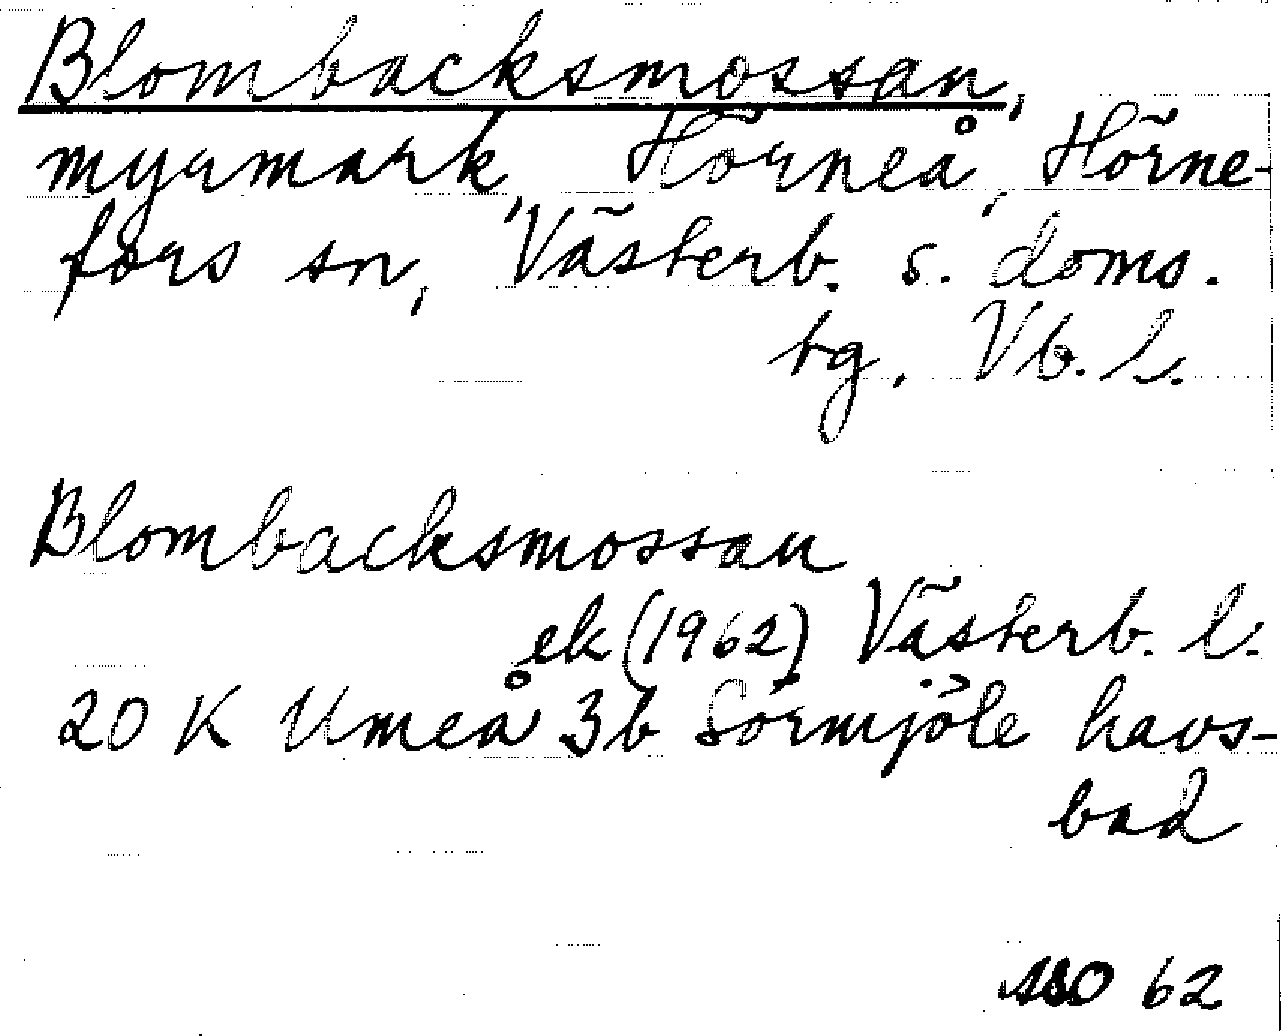 Blombacksmossan,
myrmark, Hörneå, Hörne-
fors sn, Västerb. s. doms.
bg, Vb. l.
Blombacksmossan
ek (1962) Västerb. l.
20 K Umeå 3b Sörmjöle havs-
bad
62